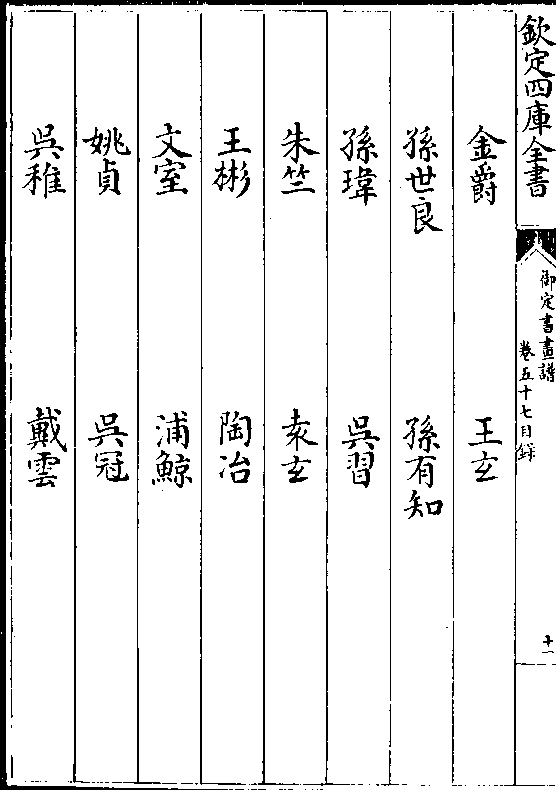 欽定四庫全書
御定書畫譜
卷五十七目錄
十一
金爵 王玄
孫世良 孫有知
孫瑋 吳習
朱竺 袁玄
王彬 陶冶
文室 浦鯨
姚貞 吳冠
吳稚 戴雲